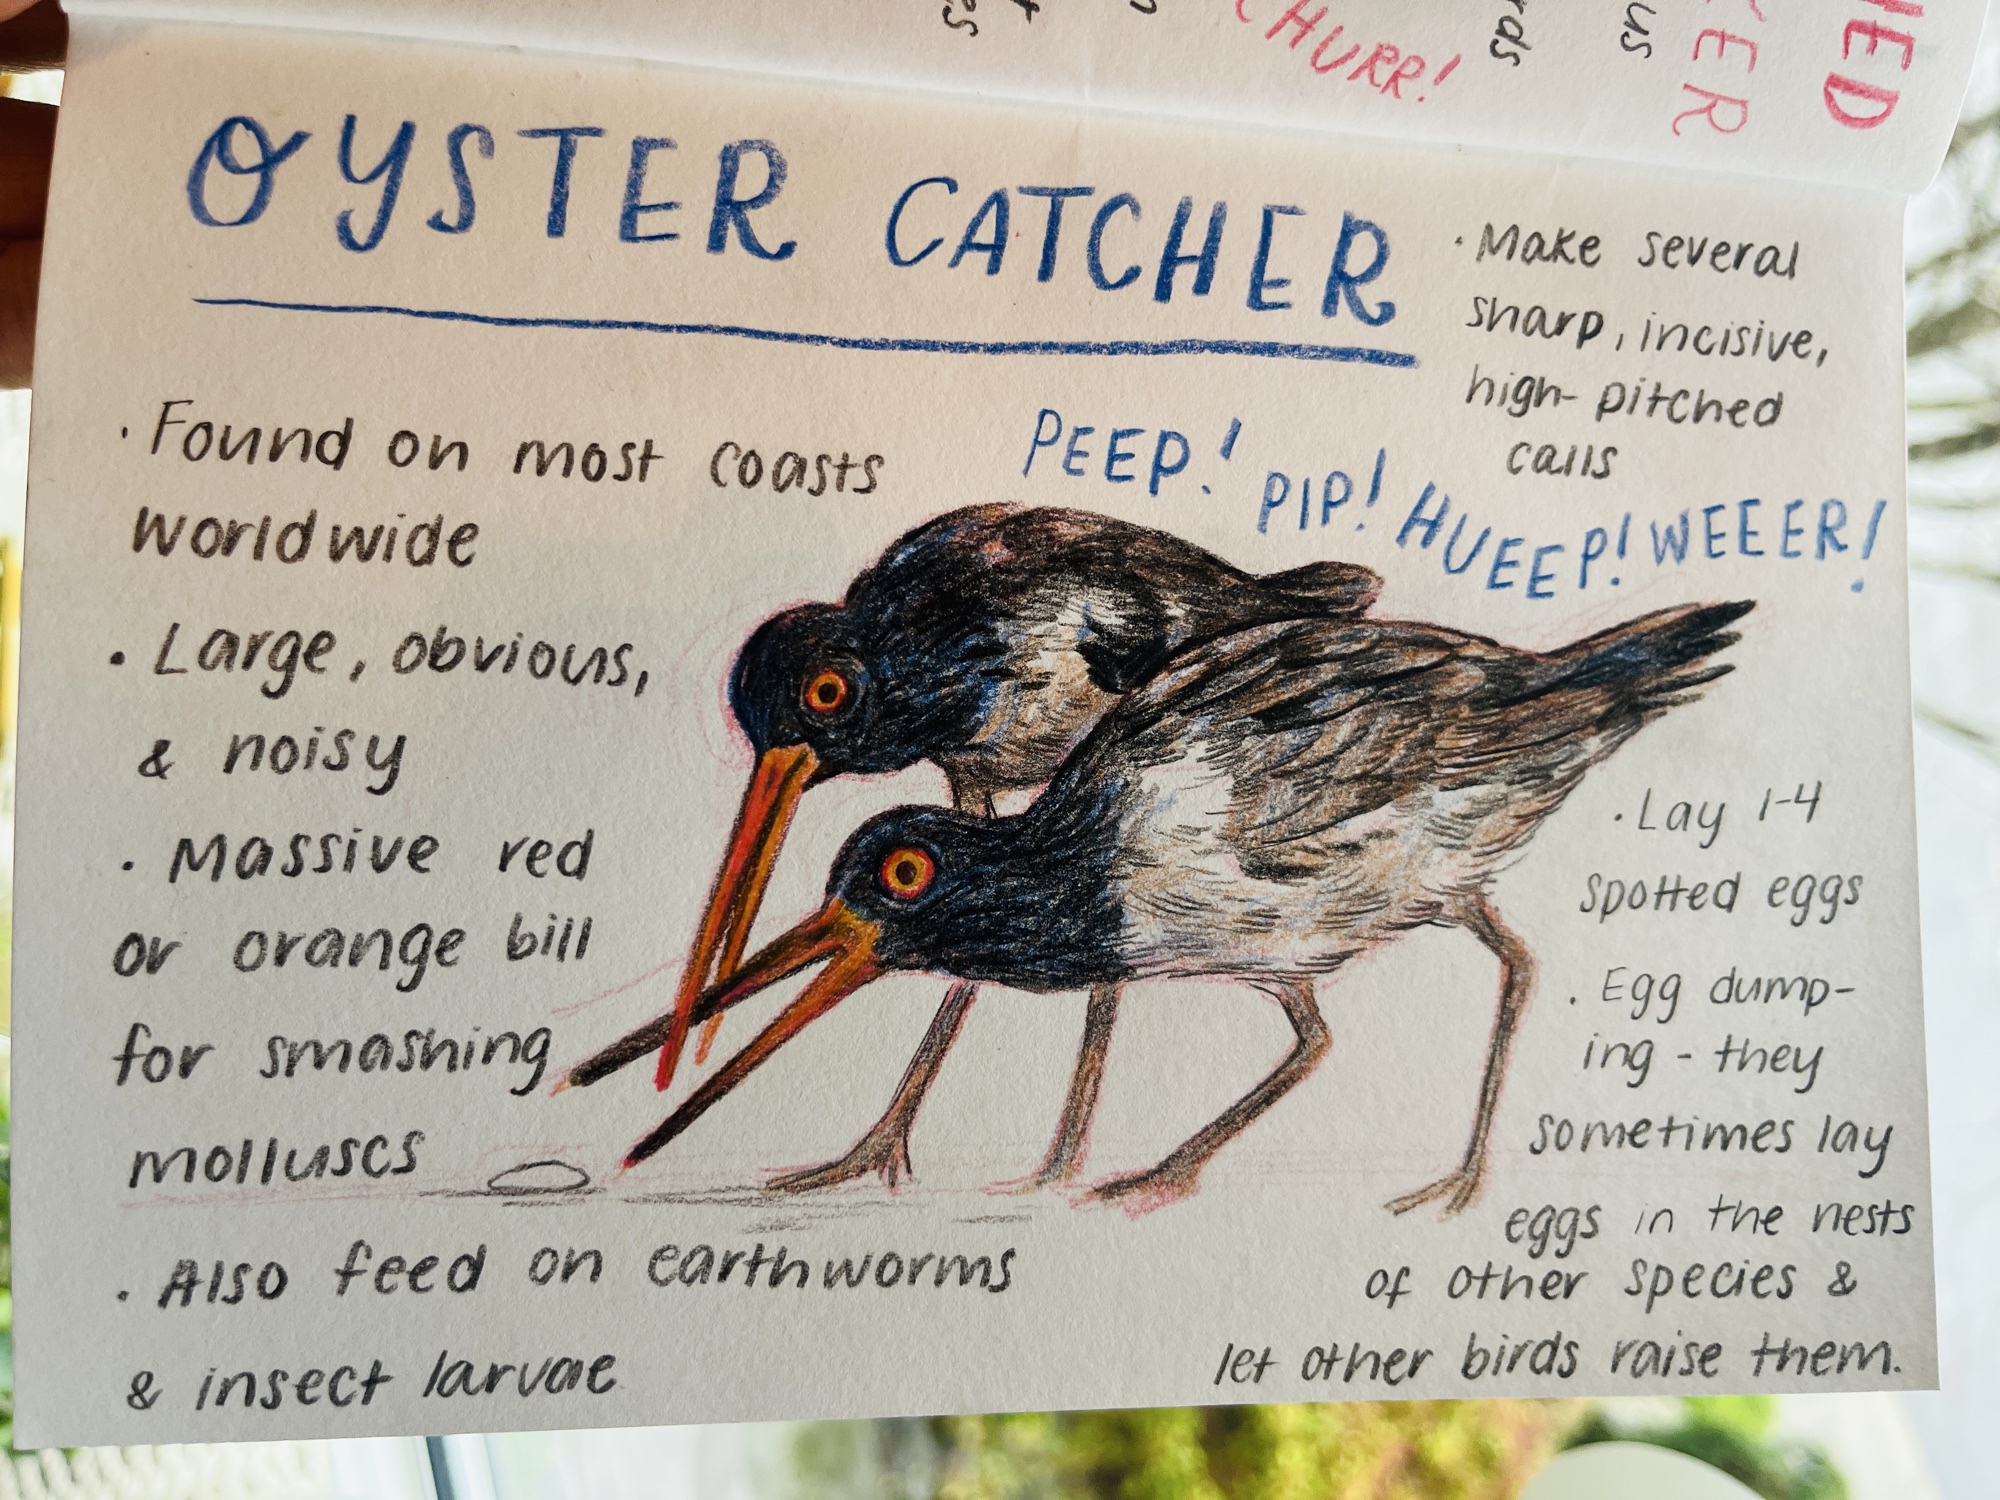 CHURR!
rds
us
KER
HED
OYSTER CATCHER
· Make several
sharp, incisive,
high-pitched
calls
PEEP! PIP! HUEEP! WEEER!
· Found on most coasts
worldwide
· Large, obvious,
& noisy
· Massive red
or orange bill
for smashing
molluscs
· Also feed on earthworms
& insect larvae
· Lay 1-4
spotted eggs
· Egg dump-
ing - they
sometimes lay
eggs in the nests
of other species &
let other birds raise them.